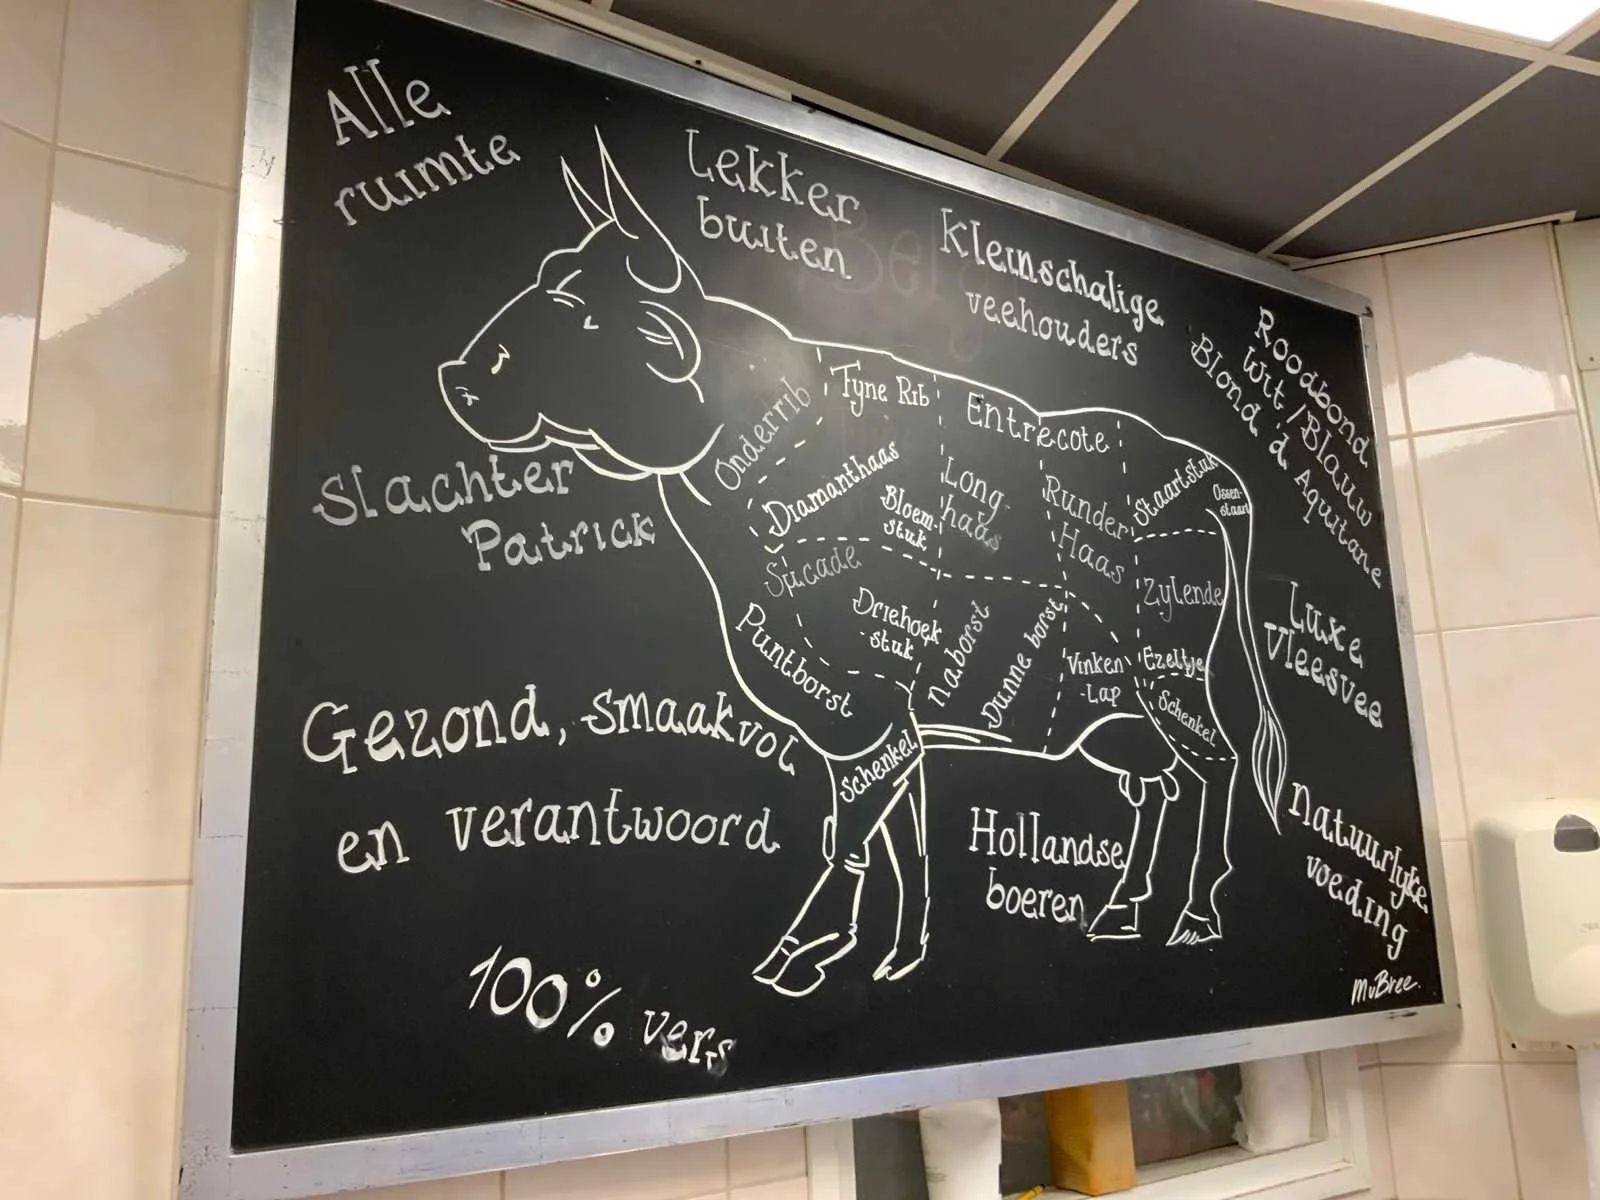 Alle
ruimte
Lekker
buiten
Kleinschalige
veehouders
Roodbond
Wit / Blauw
Blond d' Aquitane
Slachter
Patrick
Onderrib
Fyne Rib
Entrecote
Diamanthaas
Bloem-
stuk
Long-
haas
Runder
Haas
Staartstuk
Ossen-
staart
Sucade
Driehoek
-stuk
Puntborst
Naborst
Dunne borst
Vinken
-Lap
Zylende
Ezeltje
Schenkel
Schenkel
Luxe
Vleesvee
Gezond, smaakvol
en verantwoord
Hollandse
boeren
Natuurlyke
voeding
100% vers
MvBree.